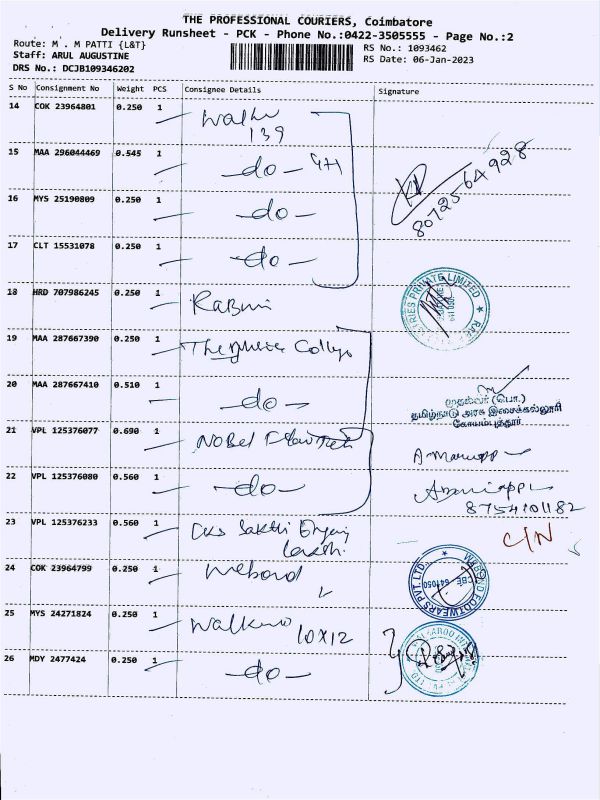 THE PROFESSIONAL COURIERS, Coimbatore
Delivery Runsheet - PCK - Phone No.:0422-3505555 - Page No.:2
Route: M . M PATTI {L&T}
RS No.: 1093462
Staff: ARUL AUGUSTINE
RS Date: 06-Jan-2023
DRS No.: DCJB109346202
S No Consignment No Weight PCS Consignee Details Signature
14 COK 23964801 0.250 1
139
15 MAA 296044469 0.545 1 -do-
80725-64928
16 MYS 25190809 0.250 1 -do-
17 CLT 15531078 0.250 1 -do-
18 HRD 707986245 0.250 1
PRIVATE LIMITED
19 MAA 287667390 0.250 1
20 MAA 287667410 0.510 1 -do-
முதல்வர் (பொ.)
தமிழ்நாடு அரசு இசைக்கல்லூரி
கோயம்புத்தூர்
21 VPL 125376077 0.690 1 NOBel
22 VPL 125376080 0.560 1 -do-
8754101182
23 VPL 125376233 0.560 1 Sakthi
C/N
24 COK 23964799 0.250 1
FOOTWEARS PVT. LTD.
CBE 641050
25 MYS 24271824 0.250 1
10x12
26 MDY 2477424 0.250 1 -do-